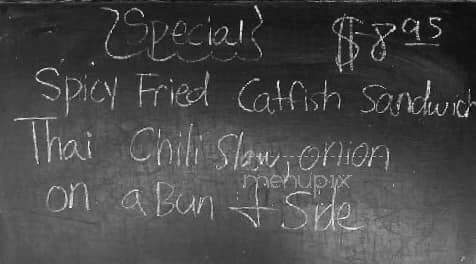 {Special} $8.95
Spicy Fried Catfish Sandwich
Thai Chili Slaw, onion
menupix
on a Bun + Side